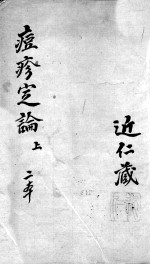 近仁藏
痘疹定論 上
二本